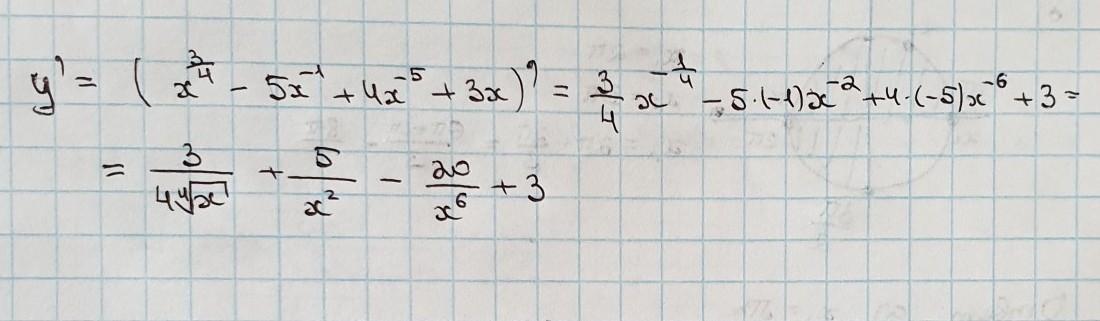 y' = (x^{3/4} - 5x^{-1} + 4x^{-5} + 3x)' = \frac{3}{4} x^{-\frac{1}{4}} - 5·(-1)x^{-2} + 4·(-5)x^{-6} + 3 =
= \frac{3}{4\sqrt[4]{x}} + \frac{5}{x^2} - \frac{20}{x^6} + 3